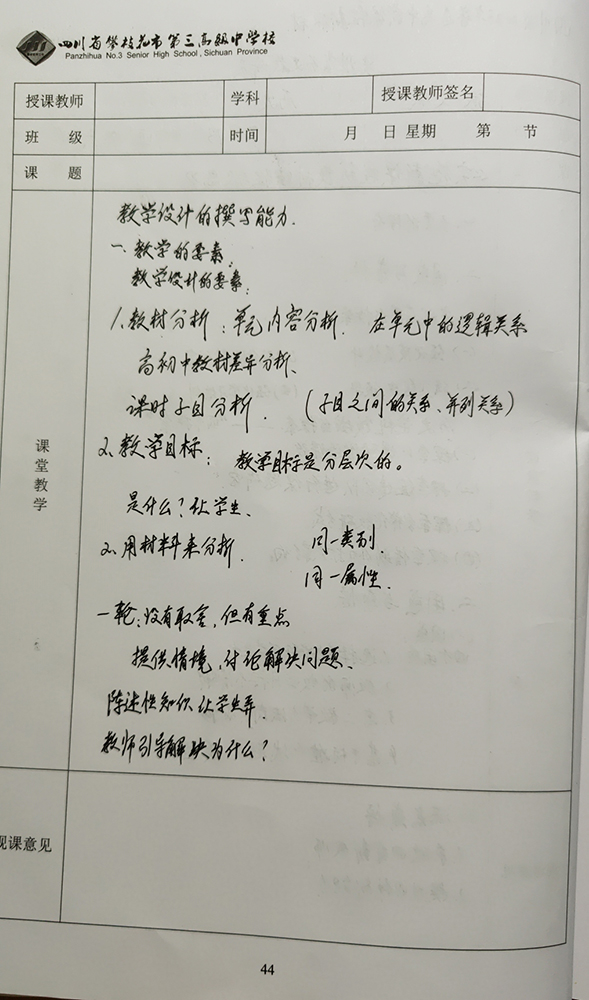 四川省攀枝花市第三高级中学校
Panzhihua No.3 Senior High School, Sichuan Province
授课教师 学科 授课教师签名
班 级 时间 月 日 星期 第 节
课 题
课堂教学
教学设计的撰写能力.
一、教学的要素:
教学设计的要素:
1.教材分析:单元内容分析. 在单元中的逻辑关系
高初中教材差异分析、
课时子目分析. (子目之间的关系、并列关系)
2.教学目标: 教学目标是分层次的。
是什么?让学生、
2.用材料来分析. 同一类别.
同一属性.
一轮:没有取舍,但有重点
提供情境,讨论解决问题、
陈述性知识 让学生弄.
教师引导解决为什么?
观课意见
44